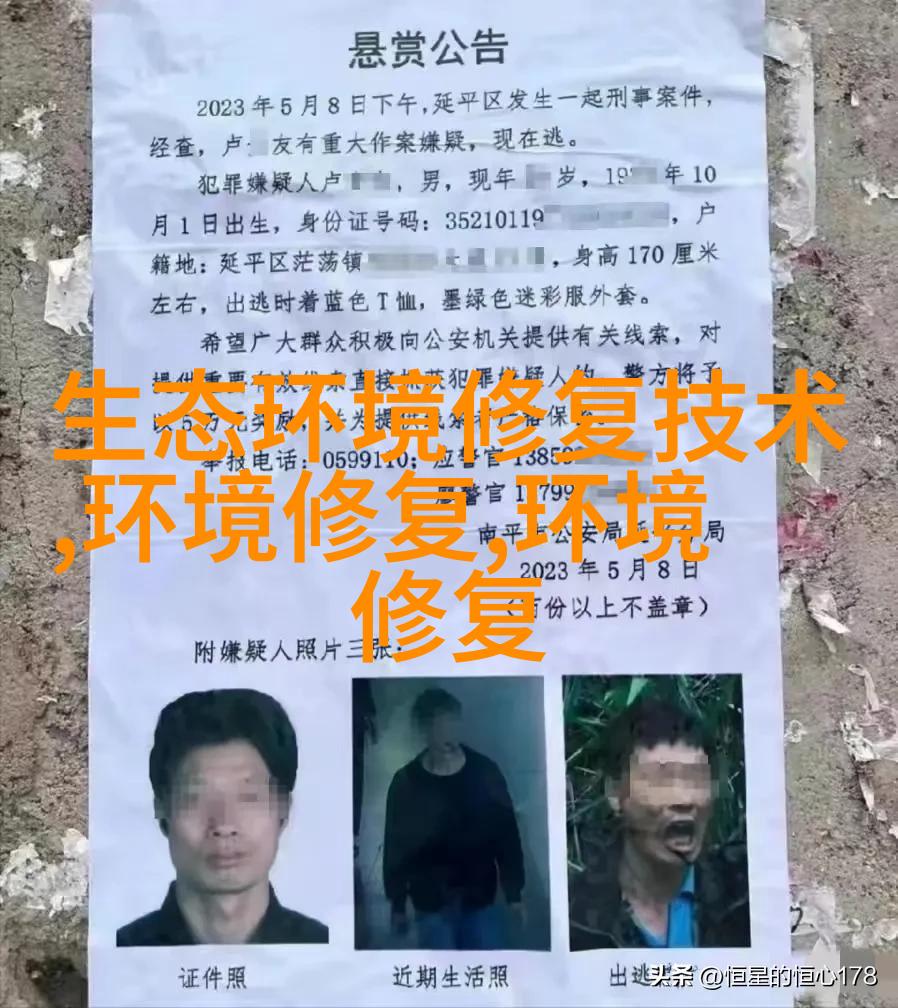 悬赏公告
2023年5月8日下午,延平区发生一起刑事案件,
经查,卢 友有重大作案嫌疑,现在逃。
犯罪嫌疑人卢 ,男,现年 岁,19 年10
月1日出生,身份证号码:35210119 ,户
籍地:延平区茫荡镇 ,身高170厘米
左右,出逃时着蓝色T恤,墨绿色迷彩服外套。
希望广大群众积极向公安机关提供有关线索,对
生态环境修复技术
,环境修复,环境
修复
举报电话:0599110;应警官1385
警官1 799
南平 公安局延 局
2023年5月8日
份以上不盖章)
附嫌疑人照片三张:
证件照
近期生活照
出逃
头条 @恒星的恒心178